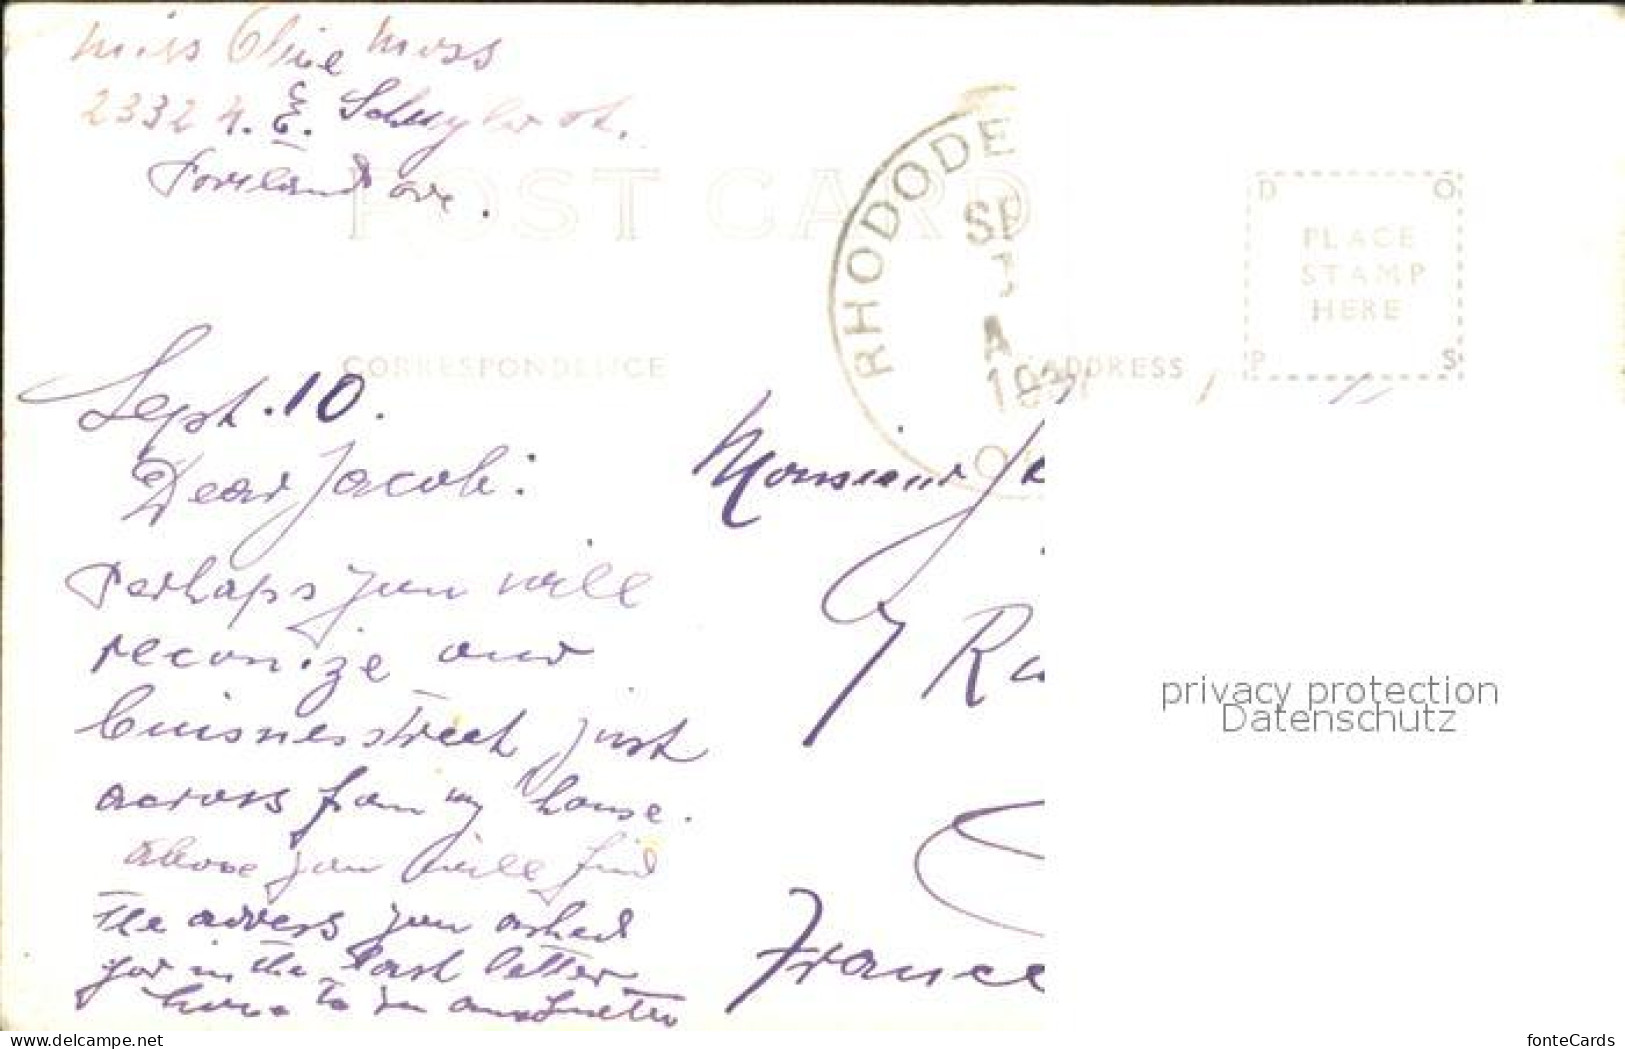 Miss Olive Moss
2332 N.E. Schuyler St.
Portland Ore.
POST CARD
RHODODE
SE
A
193
PLACE
STAMP
HERE
D O
P S
CORRESPONDENCE
ADDRESS
Sept. 10.
Dear Jacob:
Perhaps you will
reconize our
buisnesstreet just
across from my house.
Above you will find
the adress you asked
for in the last letter
Monsieur Ja
7 Ru
France
privacy protection
Datenschutz
delcampe.net
fonteCards